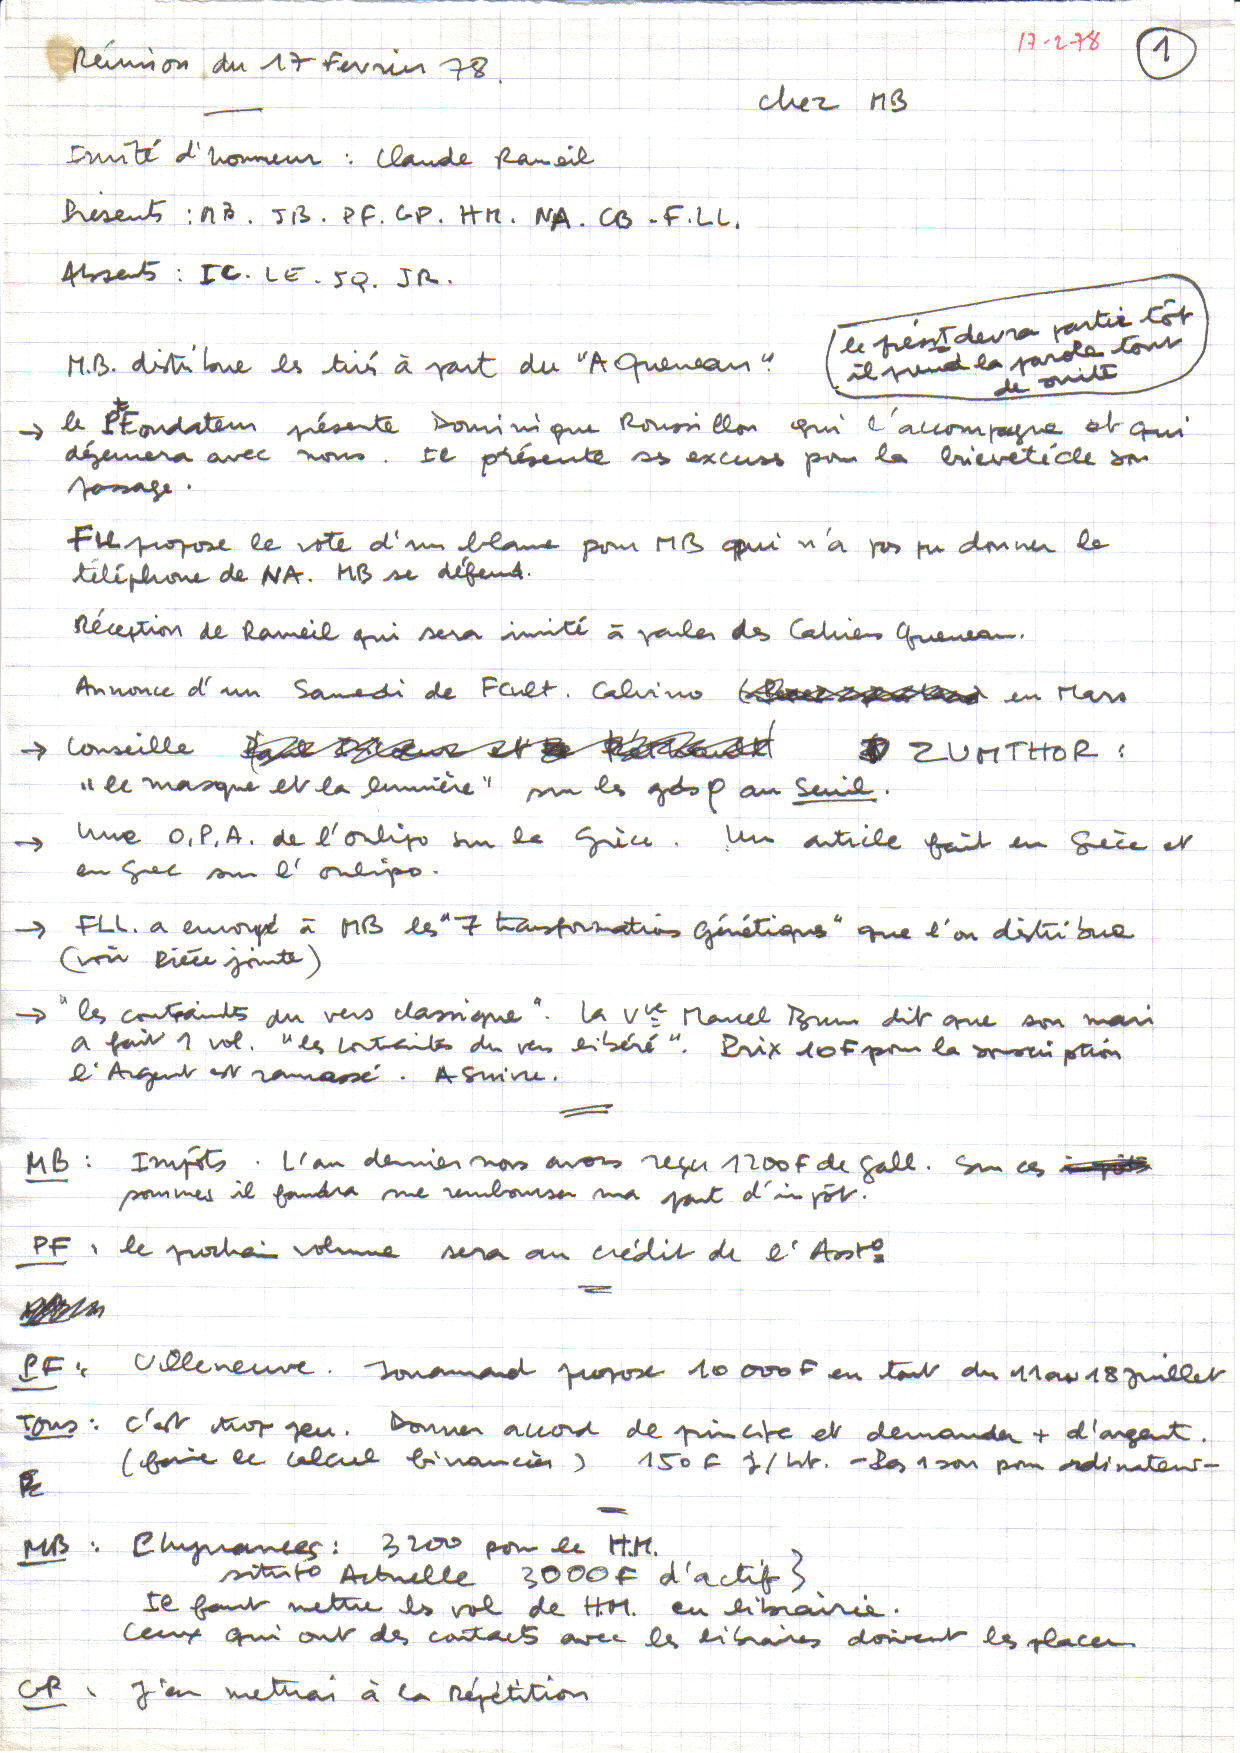 17-2-78 1
Réunion du 17 Fevrier 78.
chez MB
Invité d'honneur : Claude Rameil
Présents : MB. JB. PF. GP. HM. NA. CB - F.LL.
Absents : IC. LE. JQ. JR.
le présᵗ devra partir tôt
il prend la parole tout
de suite
M.B. distribue les tirés à part du "A Queneau".
→ le Fondateur présente Dominique Roussillon qui l'accompagne et qui
déjeunera avec nous. Il présente ses excuses pour la brièveté de son
passage.
FLL propose le vote d'un blame pour MB qui n'a pas pu donner le
téléphone de NA. MB se défend.
Réception de Rameil qui sera invité à parler des Cahiers Queneau.
Annonce d'un Samedi de FCult. Calvino en Mars
→ Conseille ZUMTHOR :
"le masque et la lumière" sur les gds au Seuil.
→ Une O.P.A. de l'oulipo sur la Grèce. Un article fait en Grèce et
en Grec sur l'oulipo.
→ FLL. a envoyé à MB les "7 transformations génétiques" que l'on distribue
(voir Pièce jointe)
→ "les contraintes du vers classique". La Vve Marcel Brun dit que son mari
a fait 1 vol. "les contraintes du vers libéré". Prix 10F pour la souscription
l'Argent est ramassé. A Suivre.
MB : Impôts. L'an dernier nous avons reçu 1200F de Gall. Sur ces
sommes il faudra me rembourser ma part d'impôt.
PF : le prochain volume sera au crédit de l'Assto
PF : Villeneuve. Jouannaud propose 10 000F en tout du 11 au 18 Juillet
Tous : C'est trop peu. Donner accord de principe et demander + d'argent.
(faire le calcul financier) 150F j/ht. - Pas 1 sou pour ordinateur -
MB : Elugnances : 3200 pour le H.M.
situto Actuelle 3000F d'actif }
Il faut mettre les vol de H.M. en librairie.
Ceux qui ont des contacts avec les libraires doivent les placer
GP : J'en mettrai à la Répétition